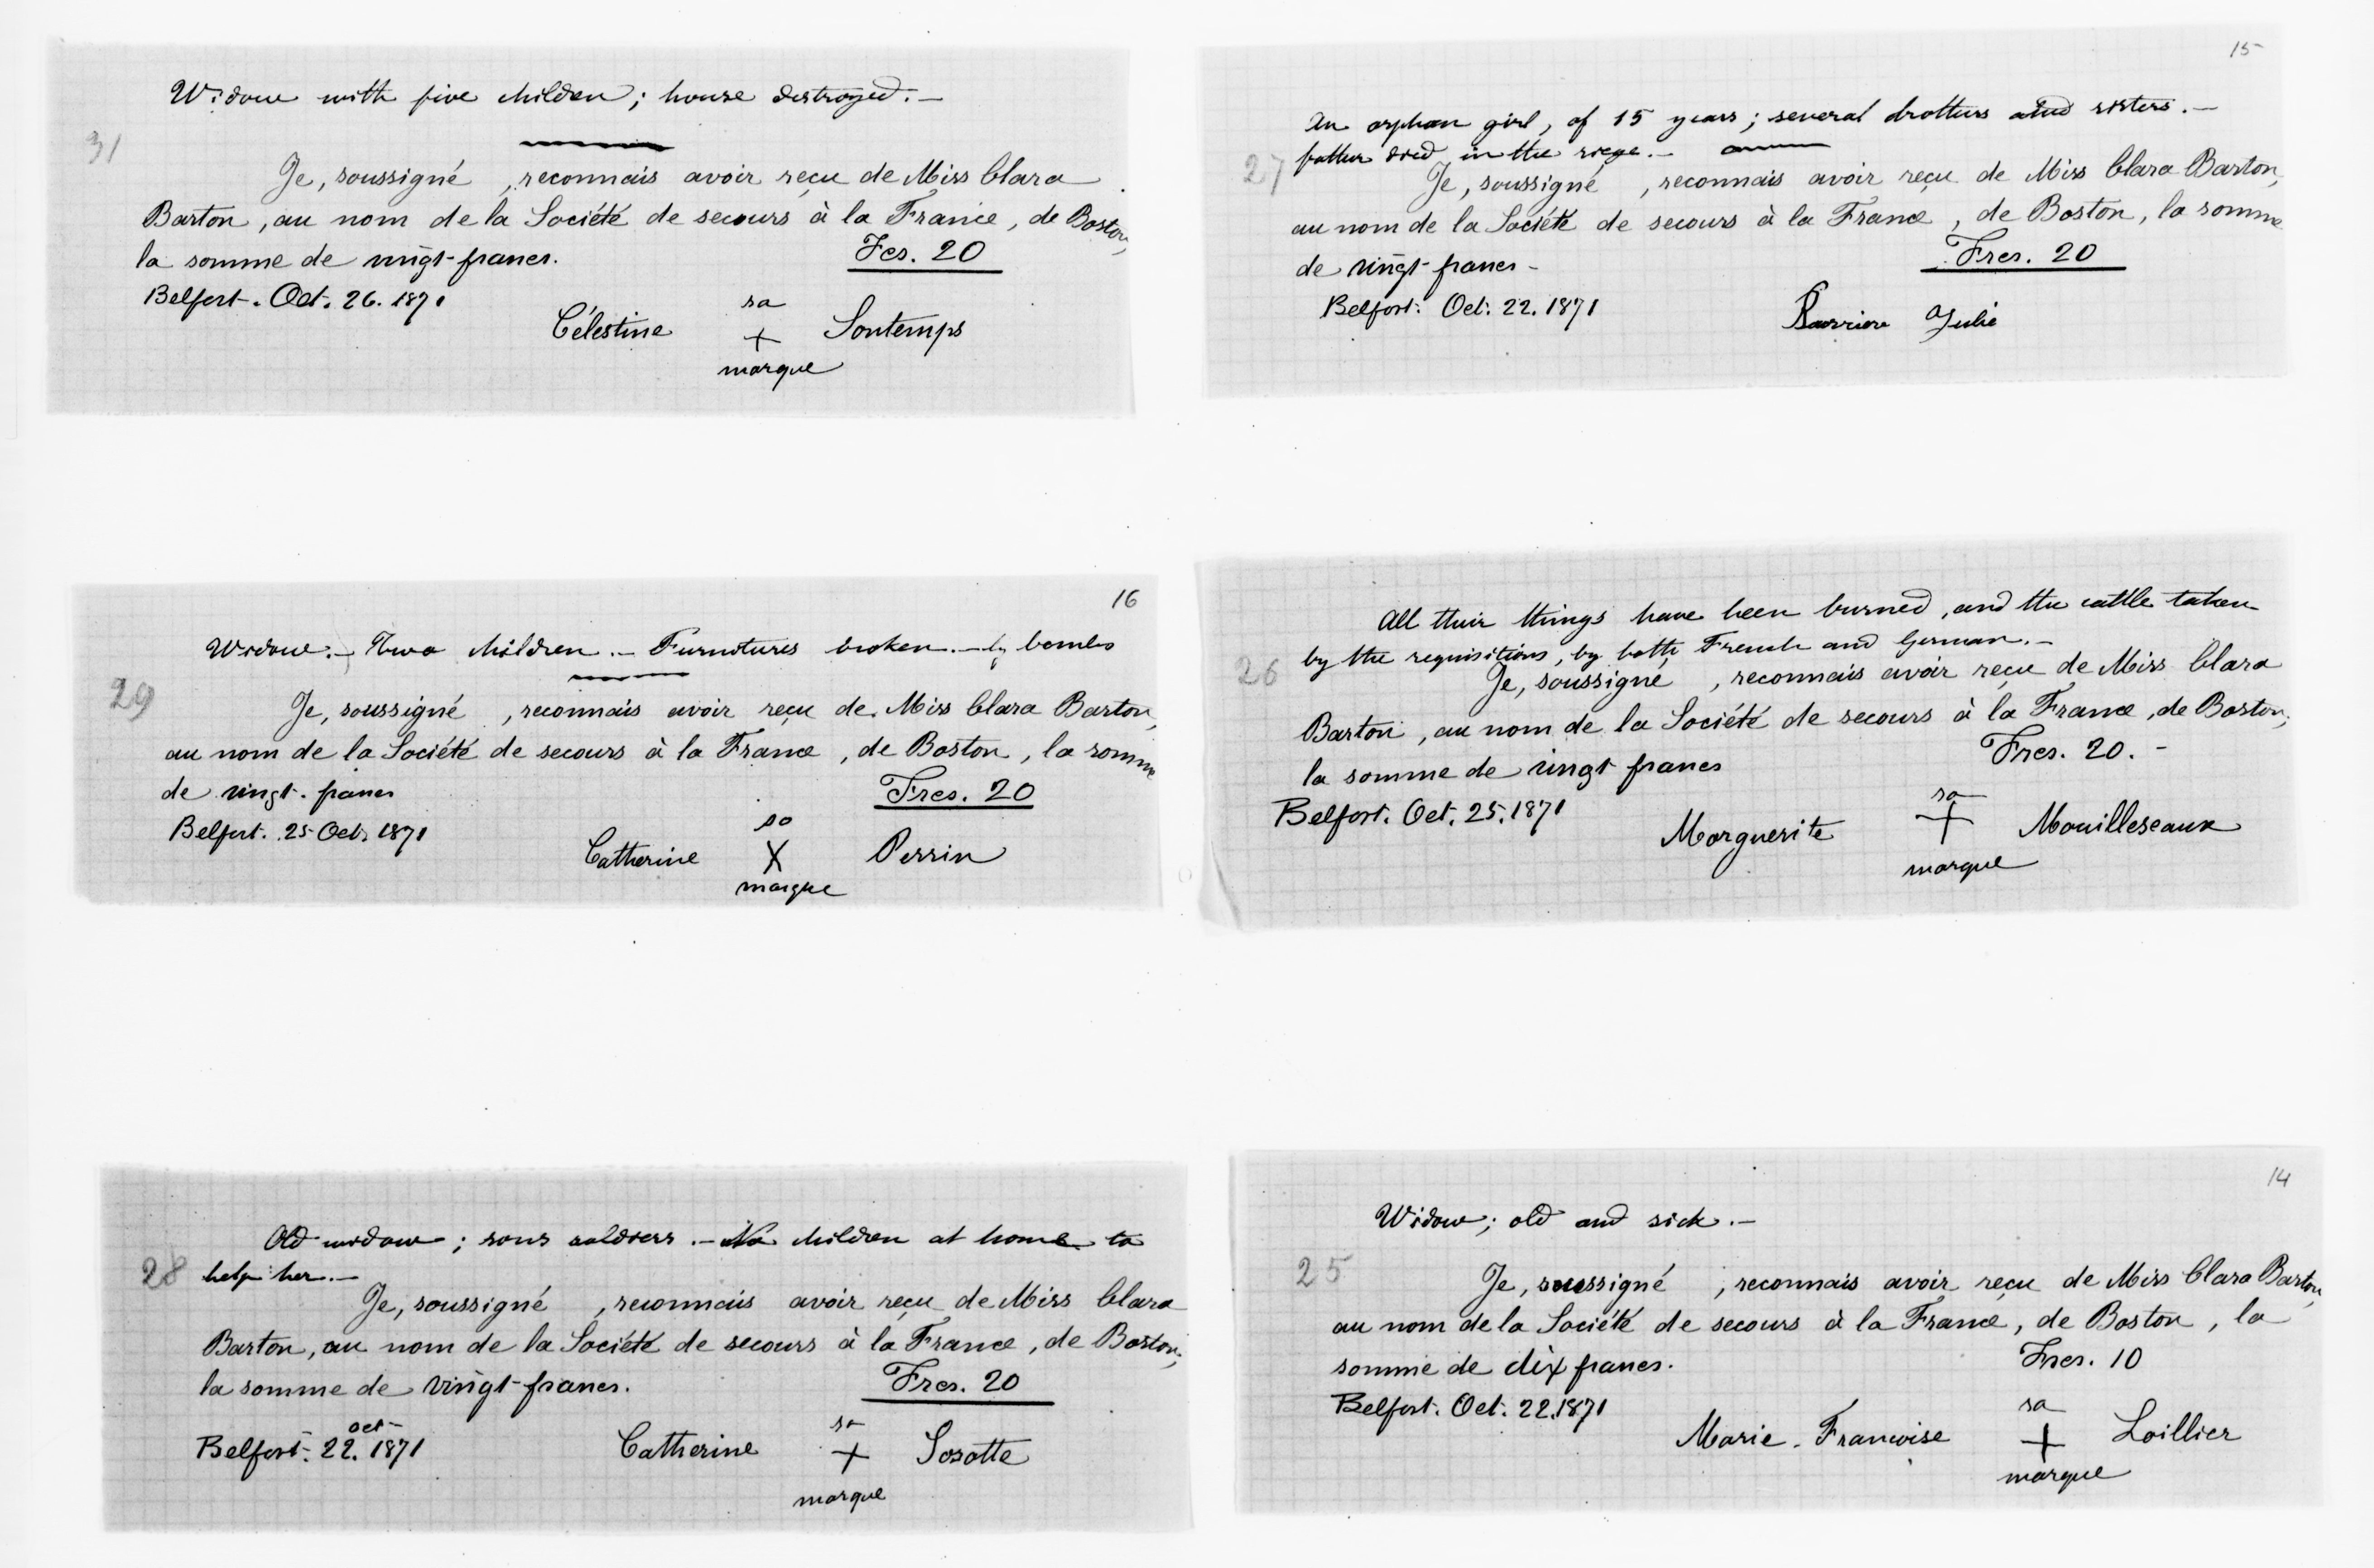 Widow with five children; house destroyed.—
31
Je, soussigné , reconnais avoir reçu de Miss Clara
Barton, au nom de la Société de secours à la France, de Boston,
la somme de vingt-francs. Fcs. 20
Belfort. Oct. 26. 1871
sa
Célestine + Sontemps
marque
16
Widow.— Two children.— Furnitures broken.— by bombs
29
Je, soussigné , reconnais avoir reçu de Miss Clara Barton,
au nom de la Société de secours à la France, de Boston, la somme
de vingt-francs Frcs. 20
Belfort. 25 Oct. 1871
sa
Catherine X Perrin
marque
Old widow; sons soldiers.— No children at home to
28 help her.—
Je, soussigné , reconnais avoir reçu de Miss Clara
Barton, au nom de la Société de secours à la France, de Boston,
la somme de vingt-francs. Frcs. 20
oct
Belfort. 22. 1871
sa
Catherine + Sosotte
marque
15
An orphan girl, of 15 years; several brothers and sisters.—
father died in the siege.—
27
Je, soussigné , reconnais avoir reçu de Miss Clara Barton,
au nom de la Société de secours à la France, de Boston, la somme
de vingt-francs- Frcs. 20
Belfort. Oct. 22. 1871
Julie
All their things have been burned, and the cattle taken
by the requisitions, by both French and German.—
26
Je, soussigné , reconnais avoir reçu de Miss Clara
Barton, au nom de la Société de secours à la France, de Boston,
la somme de vingt francs Frcs. 20.-
Belfort. Oct. 25. 1871
sa
Marguerite + Mouilleseaux
marque
14
Widow; old and sick.—
25
Je, soussigné , reconnais avoir reçu de Miss Clara Barton,
au nom de la Société de secours à la France, de Boston, la
somme de dix francs. Frcs. 10
Belfort. Oct. 22. 1871
sa
Marie-Francoise + Loillier
marque